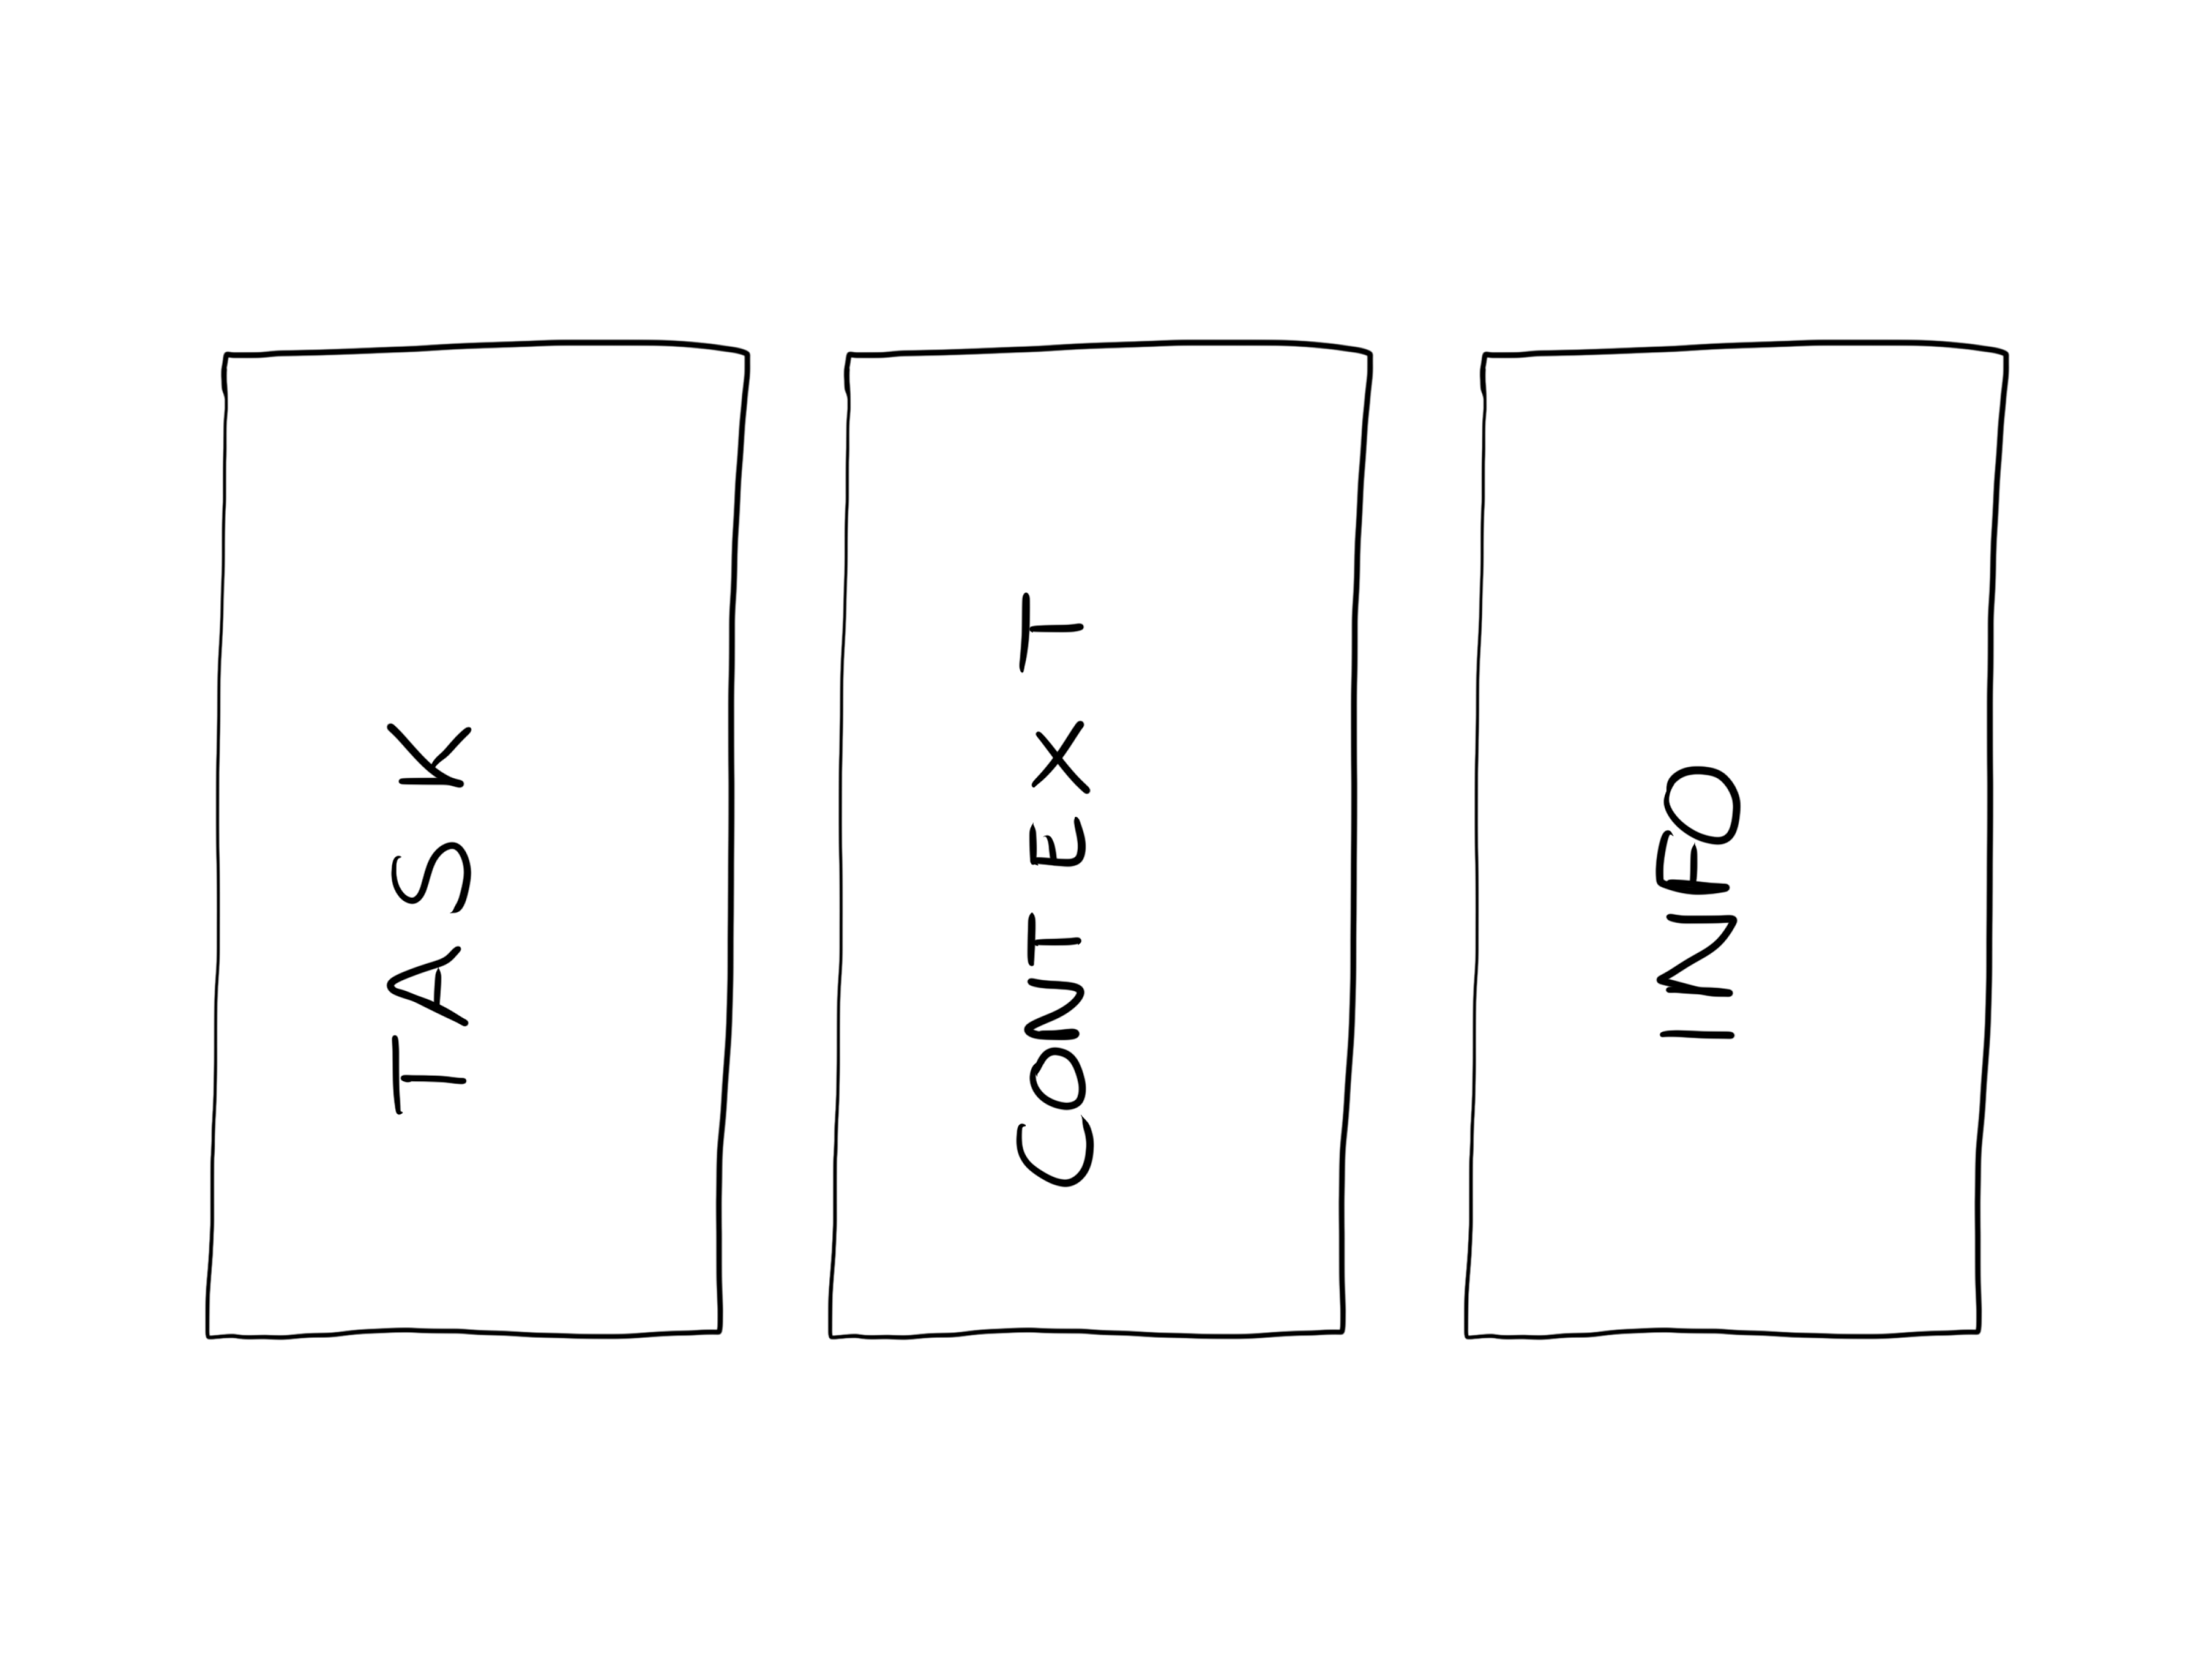 TASK
CONTEXT
INFO